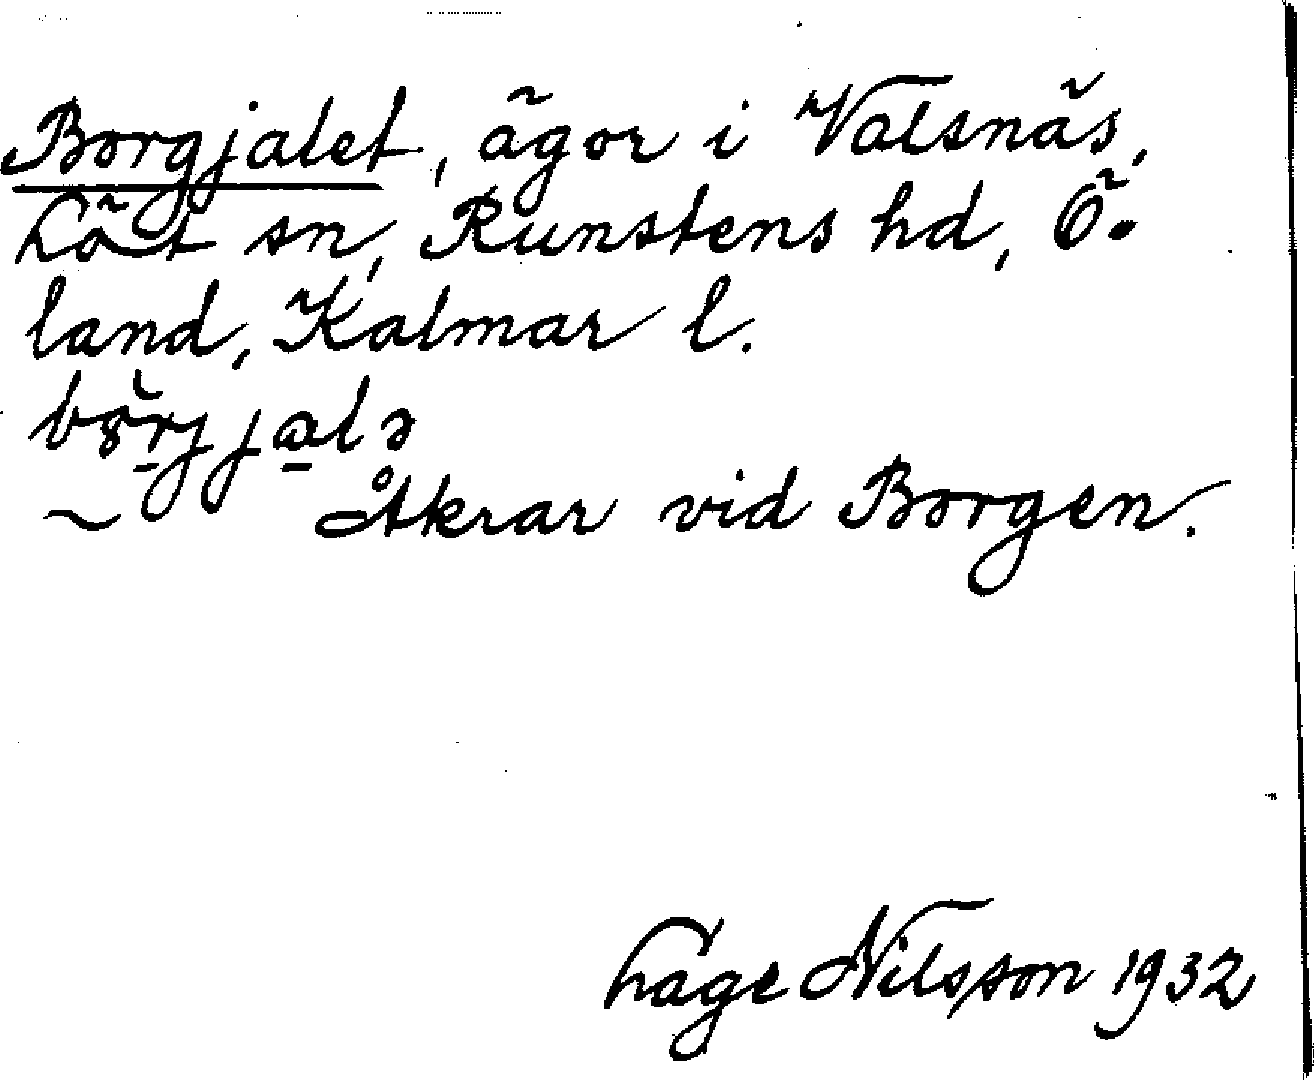 Borgjalet, ägor i Valsnäs,
Löt sn, Runstens hd, Ö-
land, Kalmar l.
Åkrar vid Borgen.
Lage Nilsson 1932